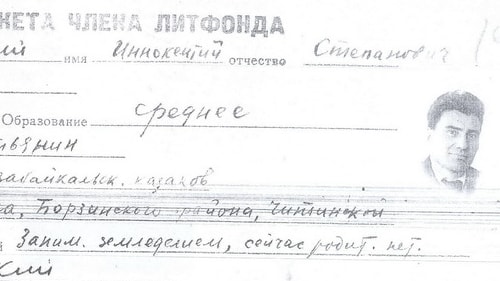 КЕТА ЧЛЕНА ЛИТФОНДА
ий имя Иннокентий отчество Степанович
Образование среднее
забайкальск. казаков
а, Борзинского района, Читинской
й Заним. земледелием, сейчас родит. нет.